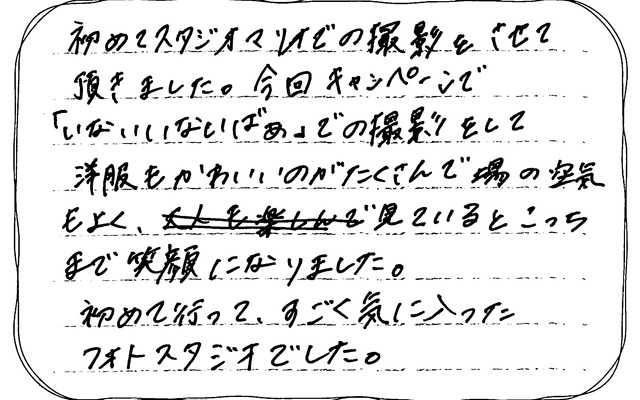 初めてスタジオマリオでの撮影をさせて
頂きました。今回キャンペーンで
「いないいないばぁ」での撮影をして
洋服もかわいいのがたくさんで場の空気
もよく、大人も楽しんで見ているとこっち
まで笑顔になりました。
初めて行って、すごく気に入った
フォトスタジオでした。